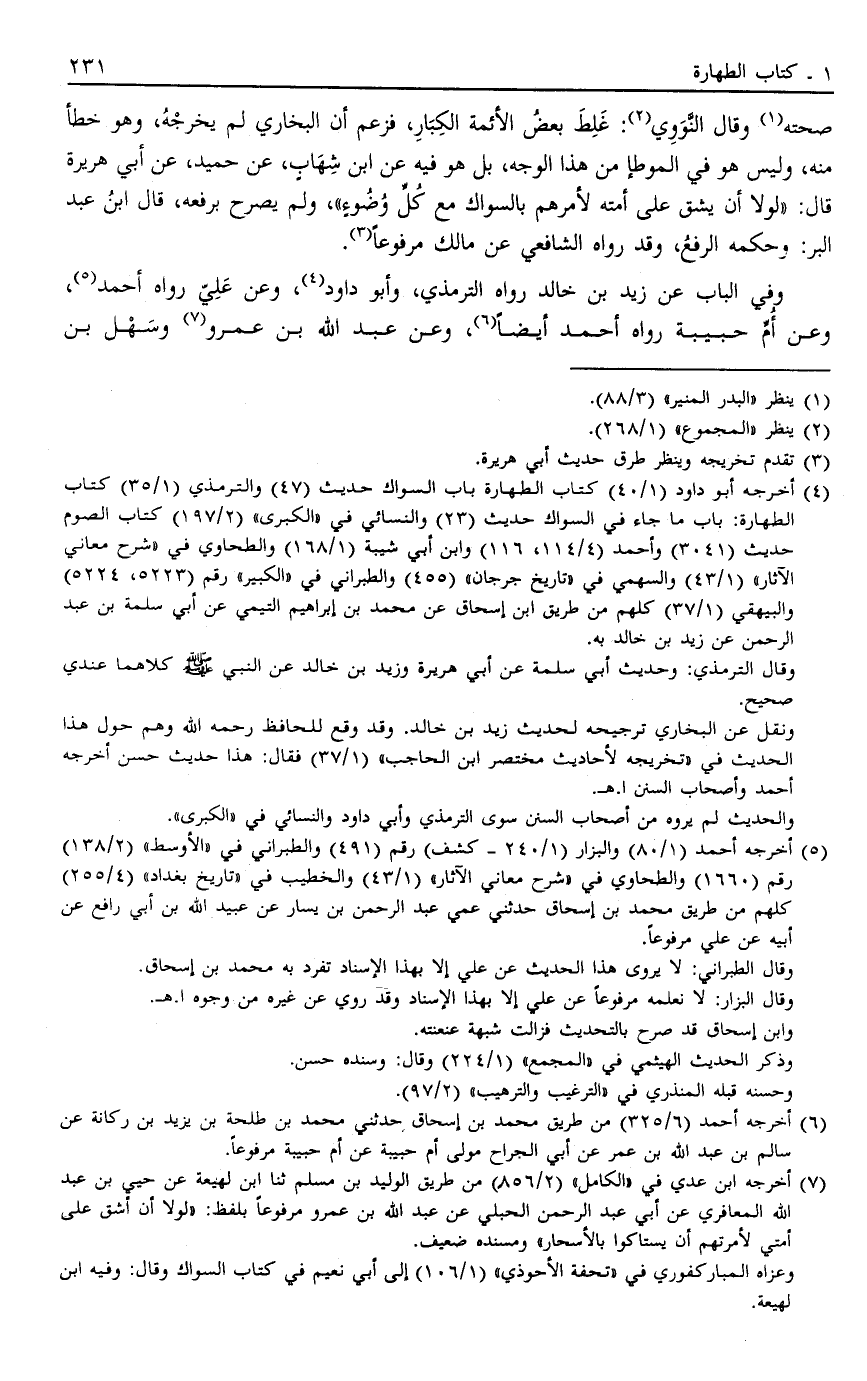 ١ ـ كتاب الطهارة
٢٣١
صحته(١) وقال النَّوَوِي(٢): غَلِطَ بعضُ الأئمة الكِبَارِ، فزعم أن البخاري لم يخرجْهُ، وهو خطأ
منه، وليس هو في الموطإ من هذا الوجه، بل هو فيه عن ابن شِهَابٍ، عن حميد، عن أبي هريرة
قال: «لولا أن يشق على أمته لأمرهم بالسواك مع كُلِّ وُضُوءٍ»، ولم يصرح برفعه، قال ابنُ عبد
البر: وحكمه الرفعُ، وقد رواه الشافعي عن مالك مرفوعاً(٣).
وفي الباب عن زيد بن خالد رواه الترمذي، وأبو داود(٤)، وعن عَلِيّ رواه أحمد(٥)،
وعن أُمِّ حبيبة رواه أحمد أيضاً(٦)، وعن عبد الله بن عمرو(٧) وسَهْل بن
(١) ينظر «البدر المنير» (٨٨/٣).
(٢) ينظر «المجموع» (٢٦٨/١).
(٣) تقدم تخريجه وينظر طرق حديث أبي هريرة.
(٤) أخرجه أبو داود (٤٠/١) كتاب الطهارة باب السواك حديث (٤٧) والترمذي (٣٥/١) كتاب
الطهارة: باب ما جاء في السواك حديث (٢٣) والنسائي في «الكبرى» (١٩٧/٢) كتاب الصوم
حديث (٣٠٤١) وأحمد (١١٤/٤، ١١٦) وابن أبي شيبة (١٦٨/١) والطحاوي في «شرح معاني
الآثار» (٤٣/١) والسهمي في «تاريخ جرجان» (٤٥٥) والطبراني في «الكبير» رقم (٥٢٢٣، ٥٢٢٤)
والبيهقي (٣٧/١) كلهم من طريق ابن إسحاق عن محمد بن إبراهيم التيمي عن أبي سلمة بن عبد
الرحمن عن زيد بن خالد به.
وقال الترمذي: وحديث أبي سلمة عن أبي هريرة وزيد بن خالد عن النبي ﷺ كلاهما عندي
صحيح.
ونقل عن البخاري ترجيحه لحديث زيد بن خالد. وقد وقع للحافظ رحمه الله وهم حول هذا
الحديث في «تخريجه لأحاديث مختصر ابن الحاجب» (٣٧/١) فقال: هذا حديث حسن أخرجه
أحمد وأصحاب السنن ا.هـ.
والحديث لم يروه من أصحاب السنن سوى الترمذي وأبي داود والنسائي في «الكبرى».
(٥) أخرجه أحمد (٨٠/١) والبزار (٢٤٠/١ ـ كشف) رقم (٤٩١) والطبراني في «الأوسط» (١٣٨/٢)
رقم (١٦٦٠) والطحاوي في «شرح معاني الآثار» (٤٣/١) والخطيب في «تاريخ بغداد» (٢٥٥/٤)
كلهم من طريق محمد بن إسحاق حدثني عمي عبد الرحمن بن يسار عن عبيد الله بن أبي رافع عن
أبيه عن علي مرفوعاً.
وقال الطبراني: لا يروى هذا الحديث عن علي إلا بهذا الإسناد تفرد به محمد بن إسحاق.
وقال البزار: لا نعلمه مرفوعاً عن علي إلا بهذا الإسناد وقد روي عن غيره من وجوه ا.هـ.
وابن إسحاق قد صرح بالتحديث فزالت شبهة عنعنته.
وذكر الحديث الهيثمي في «المجمع» (٢٢٤/١) وقال: وسنده حسن.
وحسنه قبله المنذري في «الترغيب والترهيب» (٩٧/٢).
(٦) أخرجه أحمد (٣٢٥/٦) من طريق محمد بن إسحاق حدثني محمد بن طلحة بن يزيد بن ركانة عن
سالم بن عبد الله بن عمر عن أبي الجراح مولى أم حبيبة عن أم حبيبة مرفوعاً.
(٧) أخرجه ابن عدي في «الكامل» (٨٥٦/٢) من طريق الوليد بن مسلم ثنا ابن لهيعة عن حيي بن عبد
الله المعافري عن أبي عبد الرحمن الحبلي عن عبد الله بن عمرو مرفوعاً بلفظ: «لولا أن أشق على
أمتي لأمرتهم أن يستاكوا بالأسحار» ومسنده ضعيف.
وعزاه المباركفوري في «تحفة الأحوذي» (١٠٦/١) إلى أبي نعيم في كتاب السواك وقال: وفيه ابن
لهيعة.